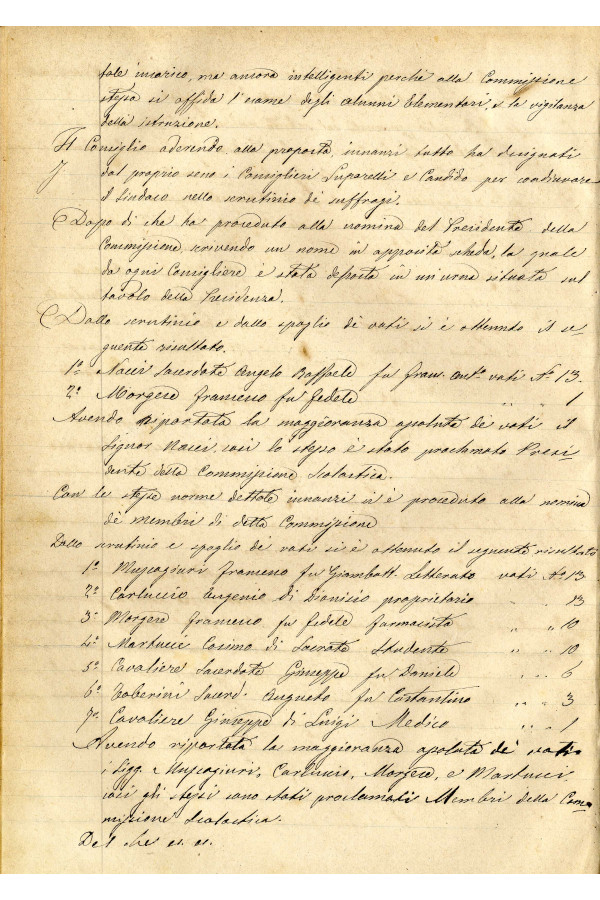 tale incarico, ma ancora intelligenti perchè alla Commissione
stessa si affida l'esame degli alunni Elementari, e la vigilanza
della istruzione.
Il Consiglio aderendo alla proposta, innanzi tutto ha designati
dal proprio seno i Consiglieri Luparelli e Candido per coadiuvare
il Sindaco nello scrutinio dei suffragi.
Dopo di che ha proceduto alla nomina del Presidente della
Commissione scrivendo un nome in apposita scheda, la quale
da ogni Consigliere è stata deposta in un'urna situata sul
tavolo della Presidenza.
Dallo scrutinio e dallo spoglio dè voti si è ottenuto il se-
guente risultato.
1° Nacci Sacerdote Angelo Raffaele fu Fran. Ant° voti N° 13.
2° Morgese Franceso fu Fedele " " 1
Avendo riportata la maggioranza assoluta dè voti il
Signor Nacci, così lo stesso è stato proclamato Presi-
dente della Commissione Scolastica.
Con le stesse norme dettate innanzi si è proceduto alla nomina
dè membri di detta Commissione
Dallo scrutinio e spoglio dè voti si è ottenuto il seguente risultato
1° Muscogiuri Franceso fu Giambatt. Letterato voti N° 13
2° Carluccio Eugenio di Dionisio proprietario " 13
3° Morgese Franceso fu Fedele farmacista " " 10
4° Martucci Cosimo di Socrate Studente " " 10
5° Cavaliere Sacerdote Giuseppe fu Daniele " " 6
6° Toberini Sacerd. Augusto fu Costantino " " 3
7° Cavaliere Giuseppe di Luigi Medico " " 1
Avendo riportata la maggioranza assoluta dè voti
i Sigg. Muscogiuri, Carluccio, Morgese, e Martucci,
così gli stessi sono stati proclamati Membri della Com-
missione Scolastica.
Del che es. es.